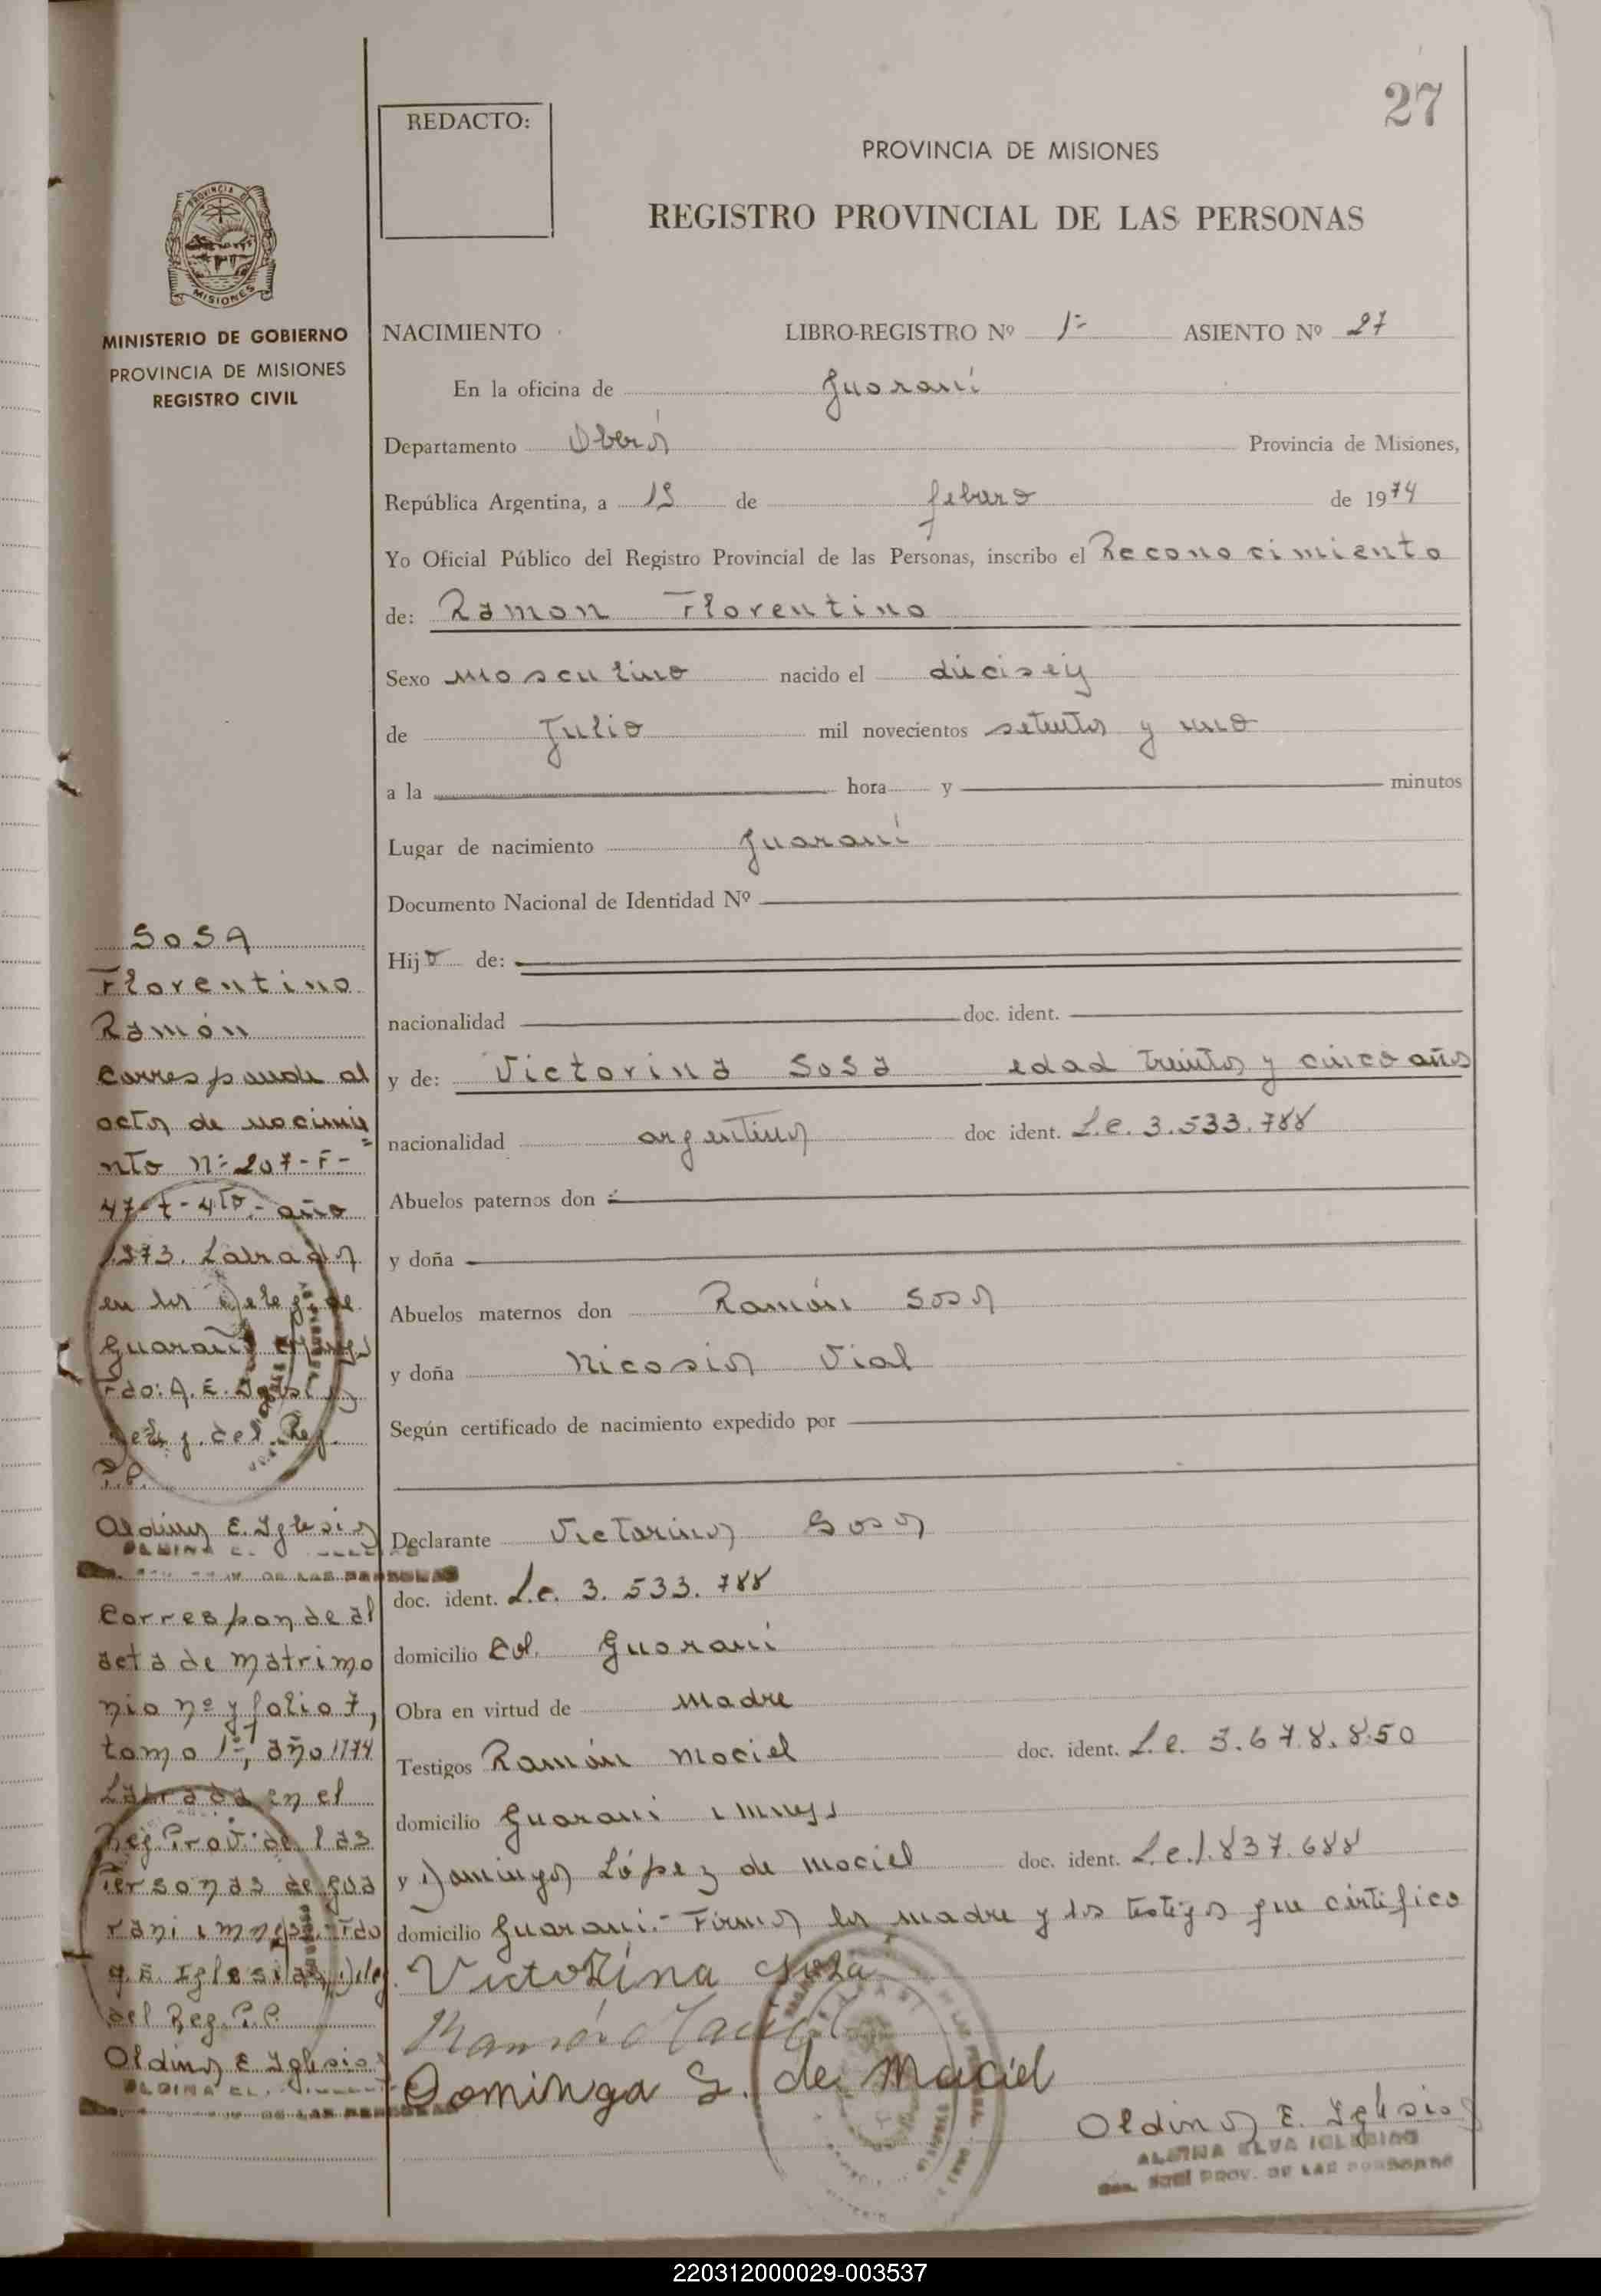 27
REDACTO:
PROVINCIA DE MISIONES
REGISTRO PROVINCIAL DE LAS PERSONAS
PROVINCIA DE
MISIONES
MINISTERIO DE GOBIERNO
PROVINCIA DE MISIONES
REGISTRO CIVIL
NACIMIENTO LIBRO-REGISTRO Nº 1º ASIENTO Nº 27
En la oficina de Guaraní
Departamento Oberá Provincia de Misiones,
República Argentina, a 15 de febrero de 1974
Yo Oficial Público del Registro Provincial de las Personas, inscribo el Reconocimiento
de: Ramon Florentino
Sexo masculino nacido el dieciseis
de Julio mil novecientos setenta y uno
a la hora y minutos
Lugar de nacimiento Guaraní
Documento Nacional de Identidad Nº
Hijo de:
nacionalidad doc. ident.
y de: Victorina Sosa edad treinta y cinco años
nacionalidad argentina doc ident. L.c. 3.533.788
Abuelos paternos don
y doña
Abuelos maternos don Ramón Sosa
y doña Nicosia Vial
Según certificado de nacimiento expedido por
Declarante Victorina Sosa
doc. ident. L.c. 3.533.788
domicilio Col. Guaraní
Obra en virtud de madre
Testigos Ramón Maciel doc. ident. L.e. 3.678.850
domicilio Guarani
y Dominga López de Maciel doc. ident. L.c. 1.837.688
domicilio Guaraní.- Firma la madre y los testigos que certifico
Victorina Sosa
Ramón Maciel
Dominga L. de Maciel
Aldina E. Iglesias
ALDINA ELVA IGLESIAS
PROV. DE LAS PERSONAS
SOSA
Florentino
Ramón
Corresponde al
acta de nacimie
nto Nº 207-F-
47-t-4to.- año
1973. Labrada
en la Deleg. de
Guaraní
Fdo: A. E. Iglesias
del Reg.
P.P.
Aldina E. Iglesias
DE LAS PERSONAS
Corresponde al
acta de matrimo
nio nº y folio 7,
tomo 1º, año 1974
Labrada en el
Reg. Prov. de las
Personas de Gua
rani Fdo
A.E. Iglesias, Deleg.
del Reg. P.P.
Aldina E. Iglesias
DE LAS PERSONAS
220312000029-003537